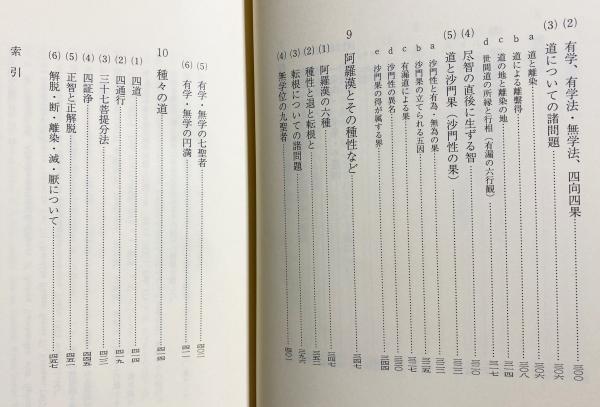 (2) 有学、有学法・無学法、四向四果……三〇〇
(3) 道についての諸問題……三〇六
a 道と離染……三〇六
b 道による離繫得……三〇八
c 道の地と離染の地……三一四
d 世間道の所縁と行相（有漏の六行観）……三一七
(4) 尽智の直後に生ずる智……三二〇
(5) 道と沙門果（沙門性の果）……三二三
a 沙門性と有為・無為の果……三二三
b 沙門果の立てられる五因……三二五
c 有漏道による果……三二七
d 沙門性の異名……三三〇
e 沙門果の得が属する界……三四四
9 阿羅漢とその種性など……三四七
(1) 阿羅漢の六種……三四七
(2) 種性と退と転根と……三五二
(3) 転根についての諸問題……
(4) 無学位の九聖者……四〇一
(5) 有学・無学の七聖者……
(6) 有学・無学の円満……四一一
10 種々の道……四一四
(1) 四道……四一四
(2) 四通行……四一九
(3) 三十七菩提分法……
(4) 四証浄……四四五
(5) 正智と正解脱……四五一
(6) 解脱・断・離染・滅・厭について……四五七
索引